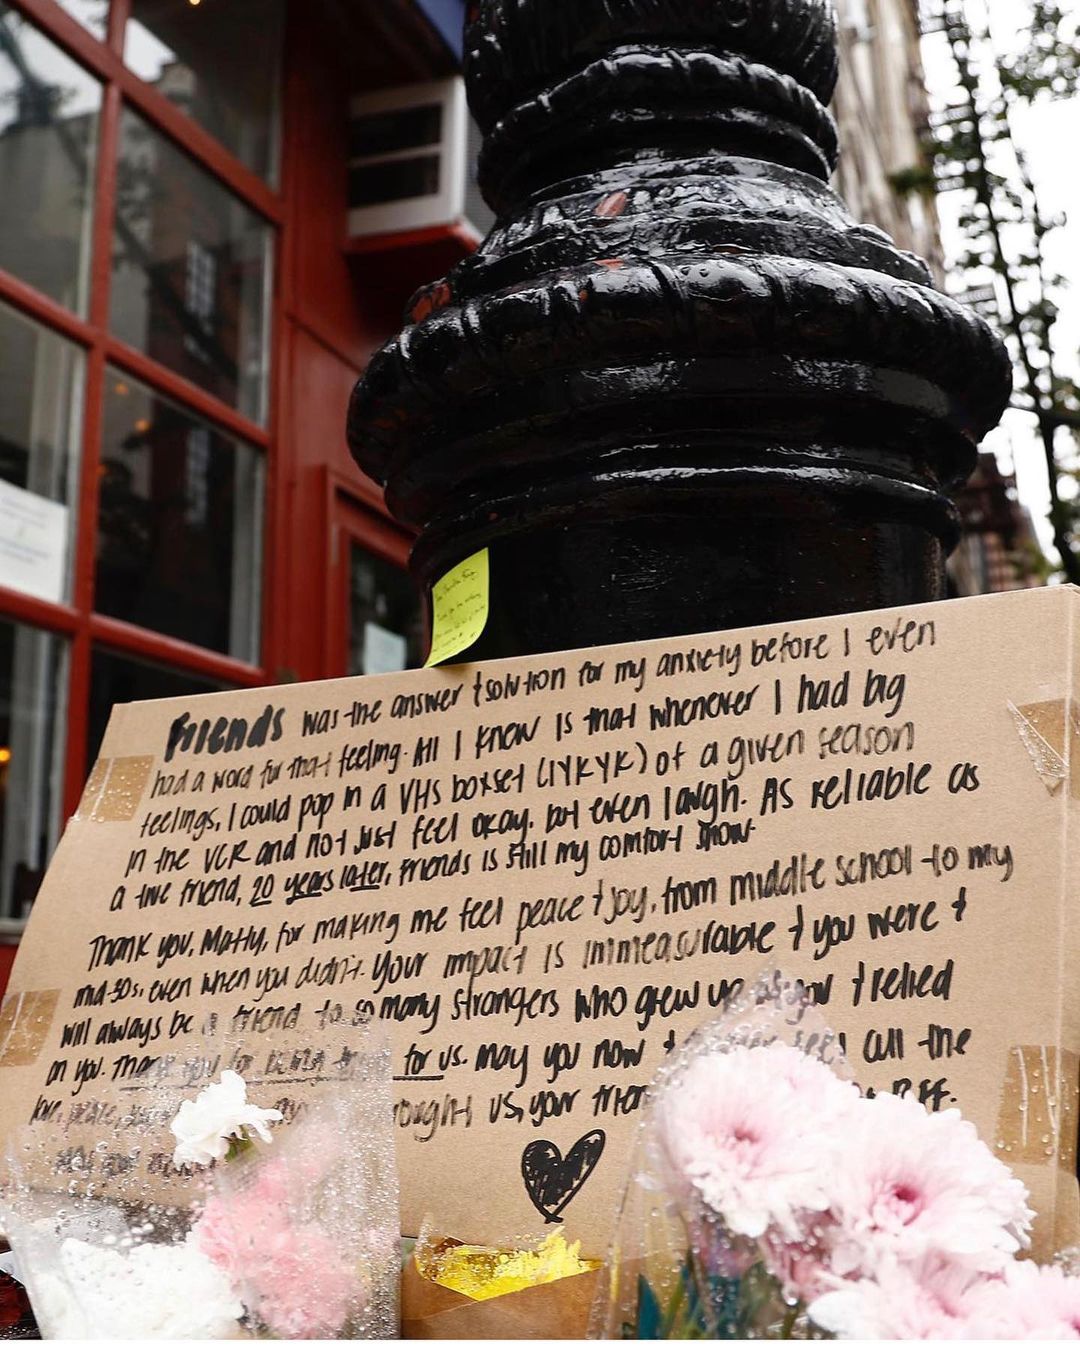 Friends was the answer & solution for my anxiety before I even
had a word for that feeling. All I know is that whenever I had big
feelings, I could pop in a VHS boxset (IYKYK) of a given season
in the VCR and not just feel okay, but even laugh. As reliable as
a true friend, 20 years later, Friends is still my comfort show.
Thank you, Matty, for making me feel peace & joy, from middle school to my
mid-30s, even when you didn't. Your impact is immeasurable & you were &
will always be a friend to so many strangers who grew up &relied
on you. Thank you for being for us. May you now & feel all the
love, peace, brought us, your BFF.